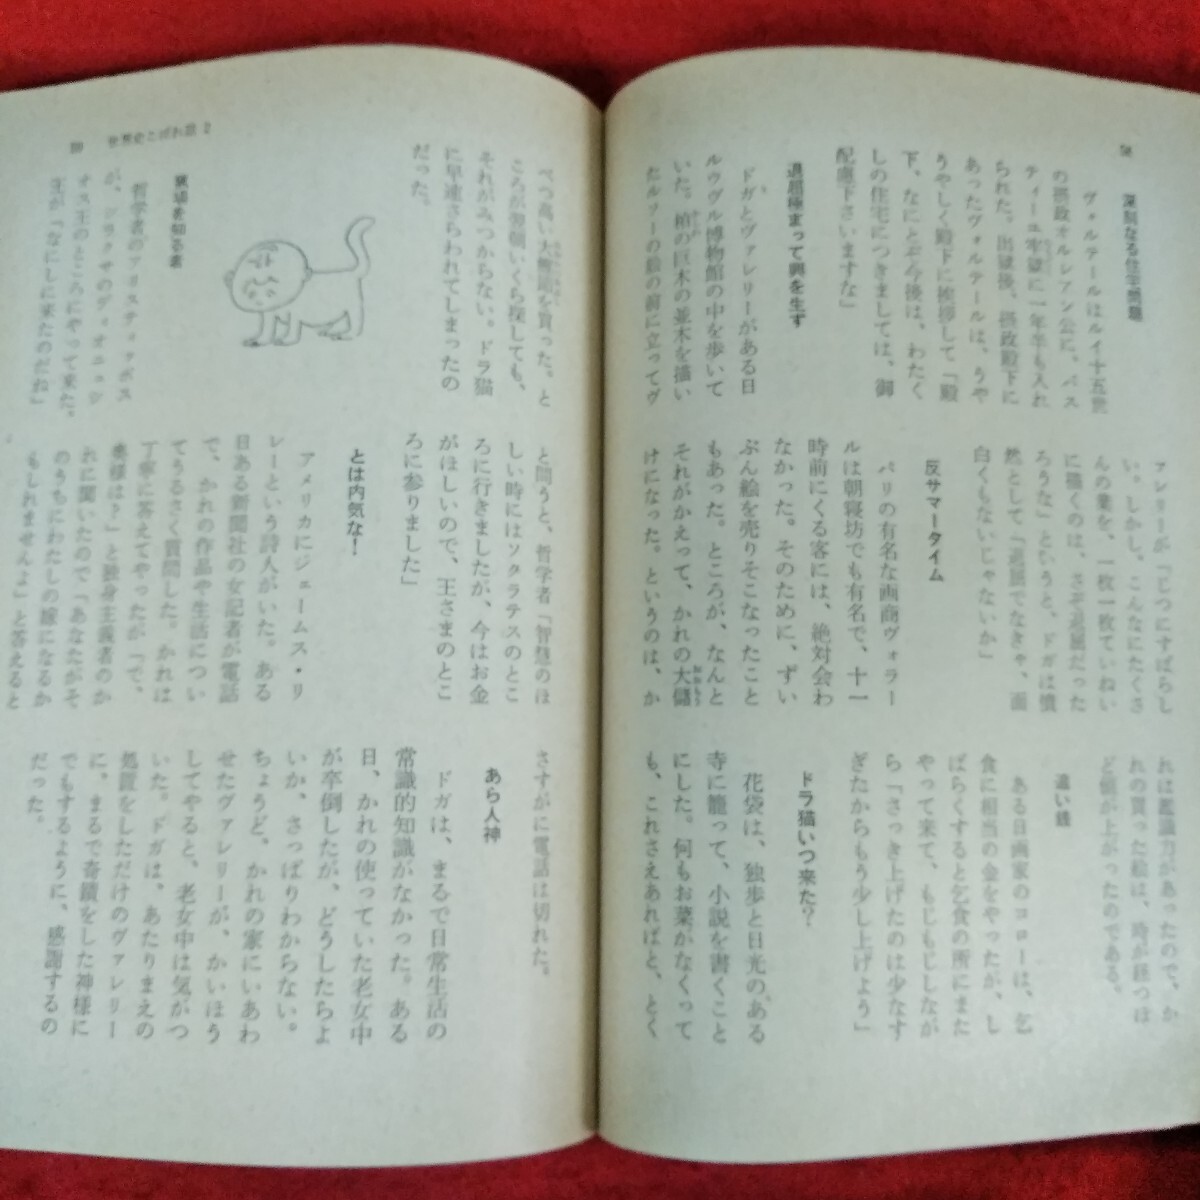 58
深刻なる住宅問題
ヴォルテールはルイ十五世
の摂政オルレアン公に、バス
ティーユ牢獄に一年半も入れ
られた。出獄後、摂政殿下に
あったヴォルテールは、うや
うやしく殿下に挨拶して「殿
下、なにとぞ今後は、わたく
しの住宅につきましては、御
配慮下さいますな」
退屈極まって興を生ず
ドガとヴァレリーがある日
ルウヴル博物館の中を歩いて
いた。柏の巨木の並木を描い
たルソーの絵の前に立ってヴ
ァレリーが「じつにすばらし
い。しかし、こんなにたくさ
んの葉を、一枚一枚ていねい
に描くのは、さぞ退屈だった
ろうな」というと、ドガは憤
然として「退屈でなきゃ、面
白くもないじゃないか」
反サマータイム
パリの有名な画商ヴォラー
ルは朝寝坊でも有名で、十一
時前にくる客には、絶対会わ
なかった。そのために、ずい
ぶん絵を売りそこなったこと
もあった。ところが、なんと
それがかえって、かれの大儲
けになった。というのは、か
れは鑑識力があったので、か
れの買った絵は、時が経つほ
ど値が上がったのである。
遠い銭
ある日画家のコローは、乞
食に相当の金をやったが、し
ばらくすると乞食の所にまた
やって来て、もじもじしなが
ら「さっき上げたのは少なす
ぎたからもう少し上げよう」
ドラ猫いつ来た?
花袋は、独歩と日光のある
寺に籠って、小説を書くこと
にした。何もお菜がなくって
も、これさえあればと、とく
59 世界史こぼれ話 2
べつ高い大鰹節を買った。と
ころが翌朝いくら探しても、
それがみつからない。ドラ猫
に早速さらわれてしまったの
だった。
哲学者のアリスティッポス
が、シラクサのディオニュシ
オス王のところにやって来た。
王が「なにしに来たのだね」
と問うと、哲学者「智慧のほ
しい時にはソクラテスのとこ
ろに行きましたが、今はお金
がほしいので、王さまのとこ
ろに参りました」
とは内気な!
アメリカにジェームス・リ
レーという詩人がいた。ある
日ある新聞社の女記者が電話
で、かれの作品や生活につい
てうるさく質問した。かれは
丁寧に答えてやったが「で、
奥様は?」と独身主義者のか
れに聞いたので「あなたがそ
のうちにわたしの嫁になるか
もしれませんよ」と答えると
さすがに電話は切れた。
あら人神
ドガは、まるで日常生活の
常識的知識がなかった。ある
日、かれの使っていた老女中
が卒倒したが、どうしたらよ
いか、さっぱりわからない。
ちょうど、かれの家にいあわ
せたヴァレリーが、かいほう
してやると、老女中は気がつ
いた。ドガは、あたりまえの
処置をしただけのヴァレリー
に、まるで奇蹟をした神様に
でもするように、感謝するの
だった。